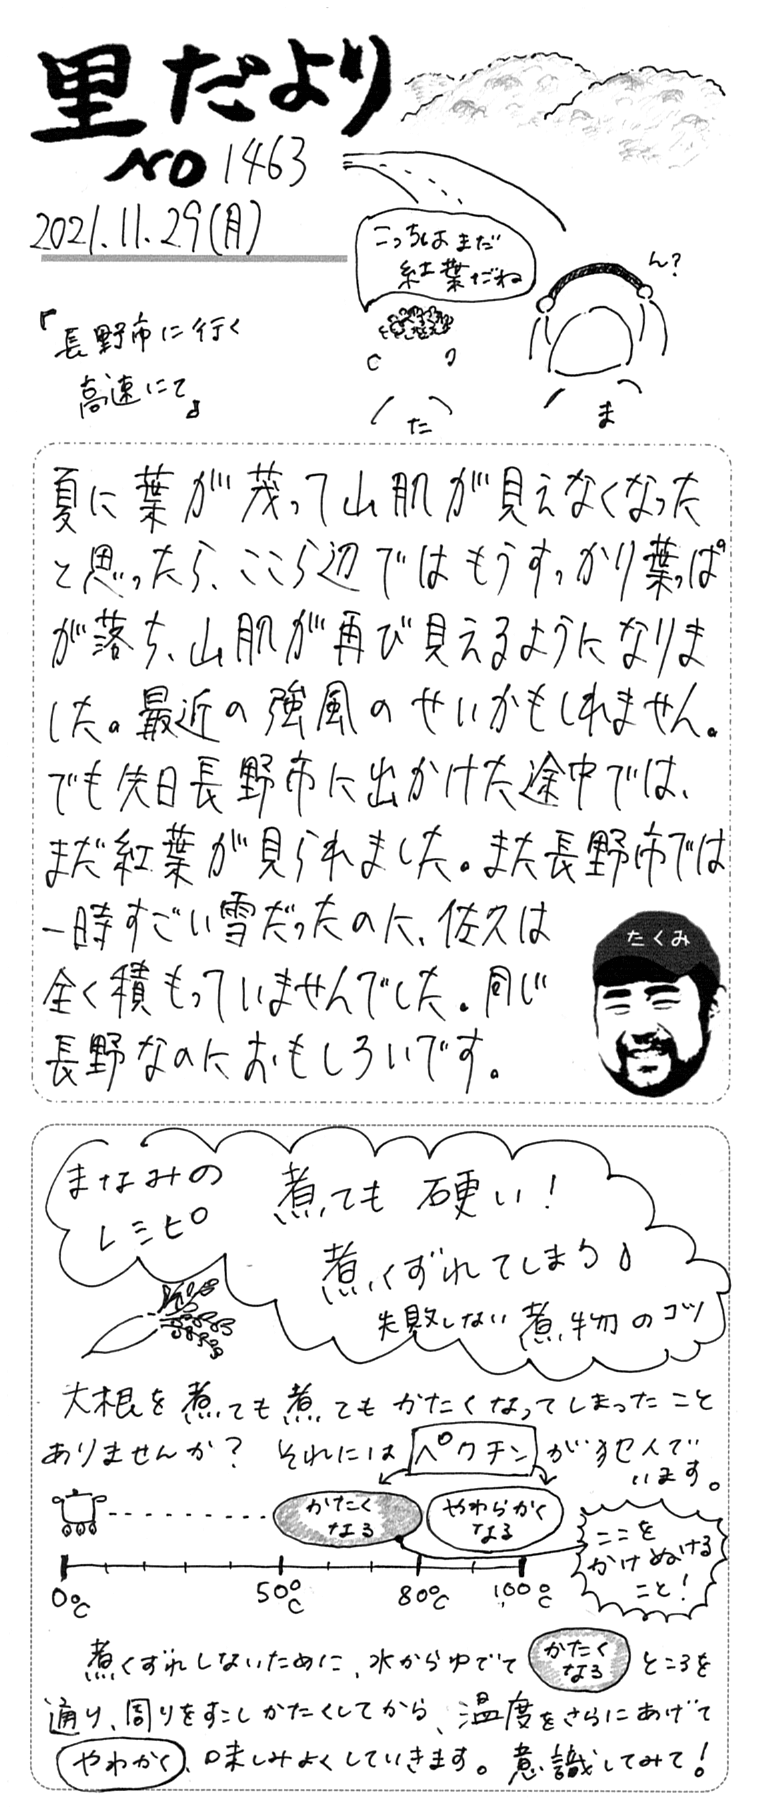 里だより
NO 1463
2021.11.29(月)
こっちはまだ
紅葉だね
ん?
『長野市に行く
高速にて』
た
ま
夏に葉が茂って山肌が見えなくなった
と思ったら、ここら辺ではもうすっかり葉っぱ
が落ち、山肌が再び見えるようになりま
した。最近の強風のせいかもしれません。
でも先日長野市に出かけた途中では、
まだ紅葉が見られました。また長野市では
一時すごい雪だったのに、佐久は
全く積もっていませんでした。同じ
長野なのにおもしろいです。
たくみ
まなみの
レシピ
煮ても硬い!
煮くずれてしまう
失敗しない煮物のコツ
大根を煮ても煮てもかたくなってしまったこと
ありませんか? それにはペクチンが犯人で
います。
かたく
なる
やわらかく
なる
ここを
かけぬける
こと!
0℃
50℃
80℃
100℃
煮くずれしないために、水からゆでてかたく
なるところを
通り、周りをすこしかたくしてから、温度をさらにあげて
やわかく、味しみよくしていきます。意識してみて!